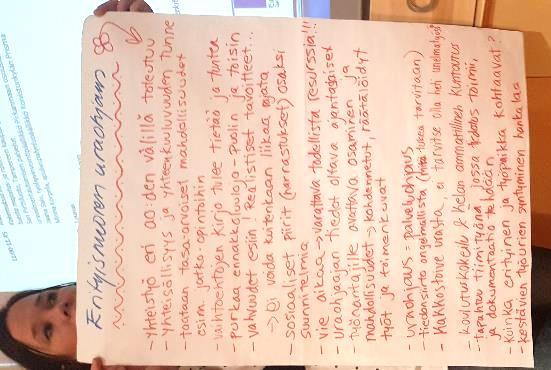 Erityisnuoren uraohjaus
- Yhteistyö eri oo:iden välillä toteutuu
- Yhteisöllisyys ja yhteenkuuluvuuden tunne
- taataan tasa-arvoiset mahdollisuudet
esim. jatko-opintoihin
- vaihtoehtojen kirjo tulee tietää ja tuntea
- purkaa ennakkoluuloja - puolin ja toisin
- vahvuudet esiin! Realistiset tavoitteet...
-> Ei voida kuitenkaan liikaa rajata
- sosiaaliset piirit (harrastukset) osaksi
suunnitelmia
- Vie aikaa -> varattava todellista resurssia!!!
- Uraohjaajan tiedot oltava ajantasaiset
- työnantajille avattava osaaminen ja
mahdollisuudet -> kohdennetut, räätälöidyt
työt ja toimenkuvat
- uraohjaus = palveluohjaus
- tiedonsiirto ongelmallista (tukea tarvitaan)
- Mahdollista unelma, ei tarvitse olla heti unelmatyö!
- koulutuskokeilu & Kelan ammatillinen kuntoutus
- tapahtuu tiimityönä jossa tiedotus toimii,
ja dokumentaatio tehdään
- Kuinka erityinen ja työpaikka kohtaavat?
kestävien työurien syntyminen hankalaa